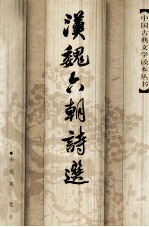 【中国古典文学读本丛书】
漢魏六朝詩選
选注